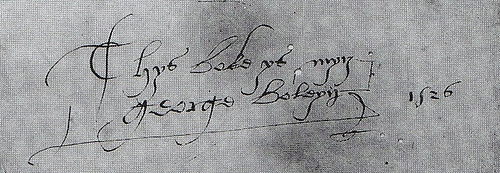 Thys boke ys myn
George boleyn 1526